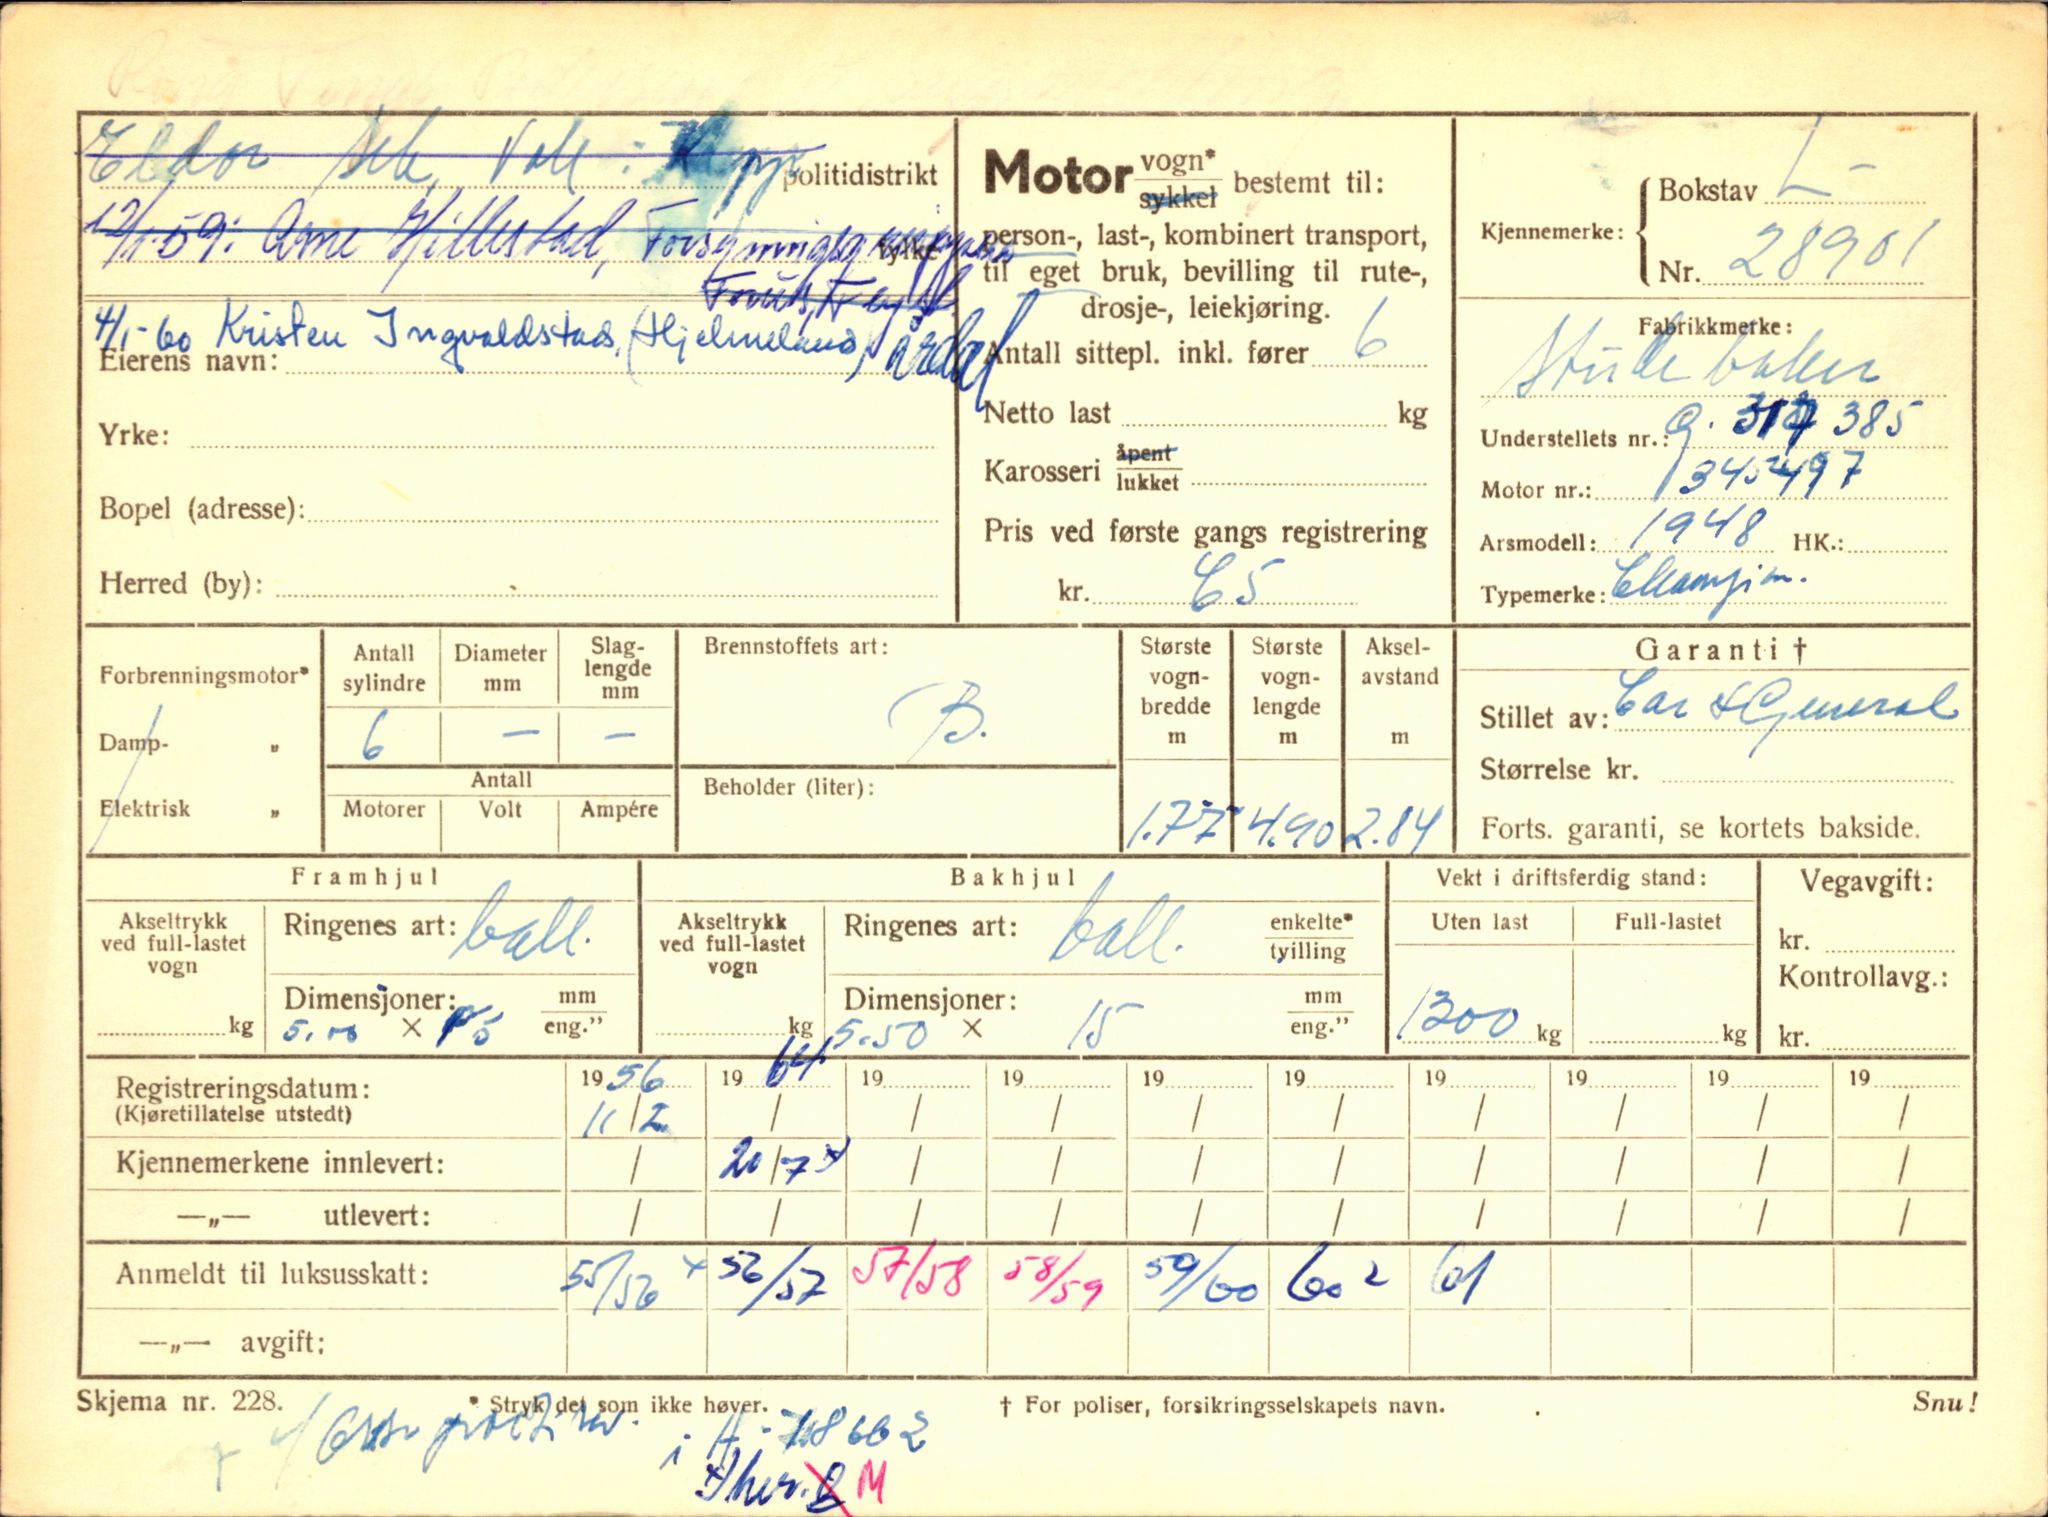 Eldor Sele, Vole i Klepp politidistrikt
12/1-59: Arne Hillestad, Forsyningsgruppen fylke
Forus,
4/1-60 Kristen Ingvaldstad, (Hjelmeland) Årdal
Eierens navn:
Yrke:
Bopel (adresse):
Herred (by):
Motor vogn* sykkel bestemt til:
person-, last-, kombinert transport,
til eget bruk, bevilling til rute-,
drosje-, leiekjøring.
Antall sittepl. inkl. fører 6
Netto last kg
Karosseri åpent lukket
Pris ved første gangs registrering
kr. C5
Kjennemerke: Bokstav L-
Nr. 28901
Fabrikkmerke:
Studebaker
Understellets nr.: G. 385
Motor nr.:
Arsmodell: 1948 HK.:
Typemerke: Champion.
Forbrenningsmotor*
Damp- „
Elektrisk „
Antall sylindre
Diameter mm
Slag-lengde mm
6 — —
Antall
Motorer Volt Ampére
Brennstoffets art:
B.
Beholder (liter):
Største vogn-bredde m
Største vogn-lengde m
Aksel-avstand m
1.77 4.90 2.84
Garanti †
Stillet av: Car & General
Størrelse kr.
Forts. garanti, se kortets bakside.
Framhjul
Akseltrykk ved full-lastet vogn
kg
Ringenes art: ball.
Dimensjoner: mm eng.”
5.50 × 15
Bakhjul
Akseltrykk ved full-lastet vogn
kg
Ringenes art: ball. enkelte* tvilling
Dimensjoner: mm eng.”
5.50 × 15
Vekt i driftsferdig stand:
Uten last Full-lastet
1300 kg kg
Vegavgift:
kr.
Kontrollavg.:
kr.
Registreringsdatum: 1956 1964 19 19 19 19 19 19 19 19
(Kjøretillatelse utstedt) 11/2 / / / / / / / / /
Kjennemerkene innlevert: / 20/7 x / / / / / / / /
—„— utlevert: / / / / / / / / / /
Anmeldt til luksusskatt: 55/56 x 56/57 57/58 58/59 59/60 60 2 61
—„— avgift:
Skjema nr. 228. * Stryk det som ikke høver. † For poliser, forsikringsselskapets navn. Snu!
i A-
M